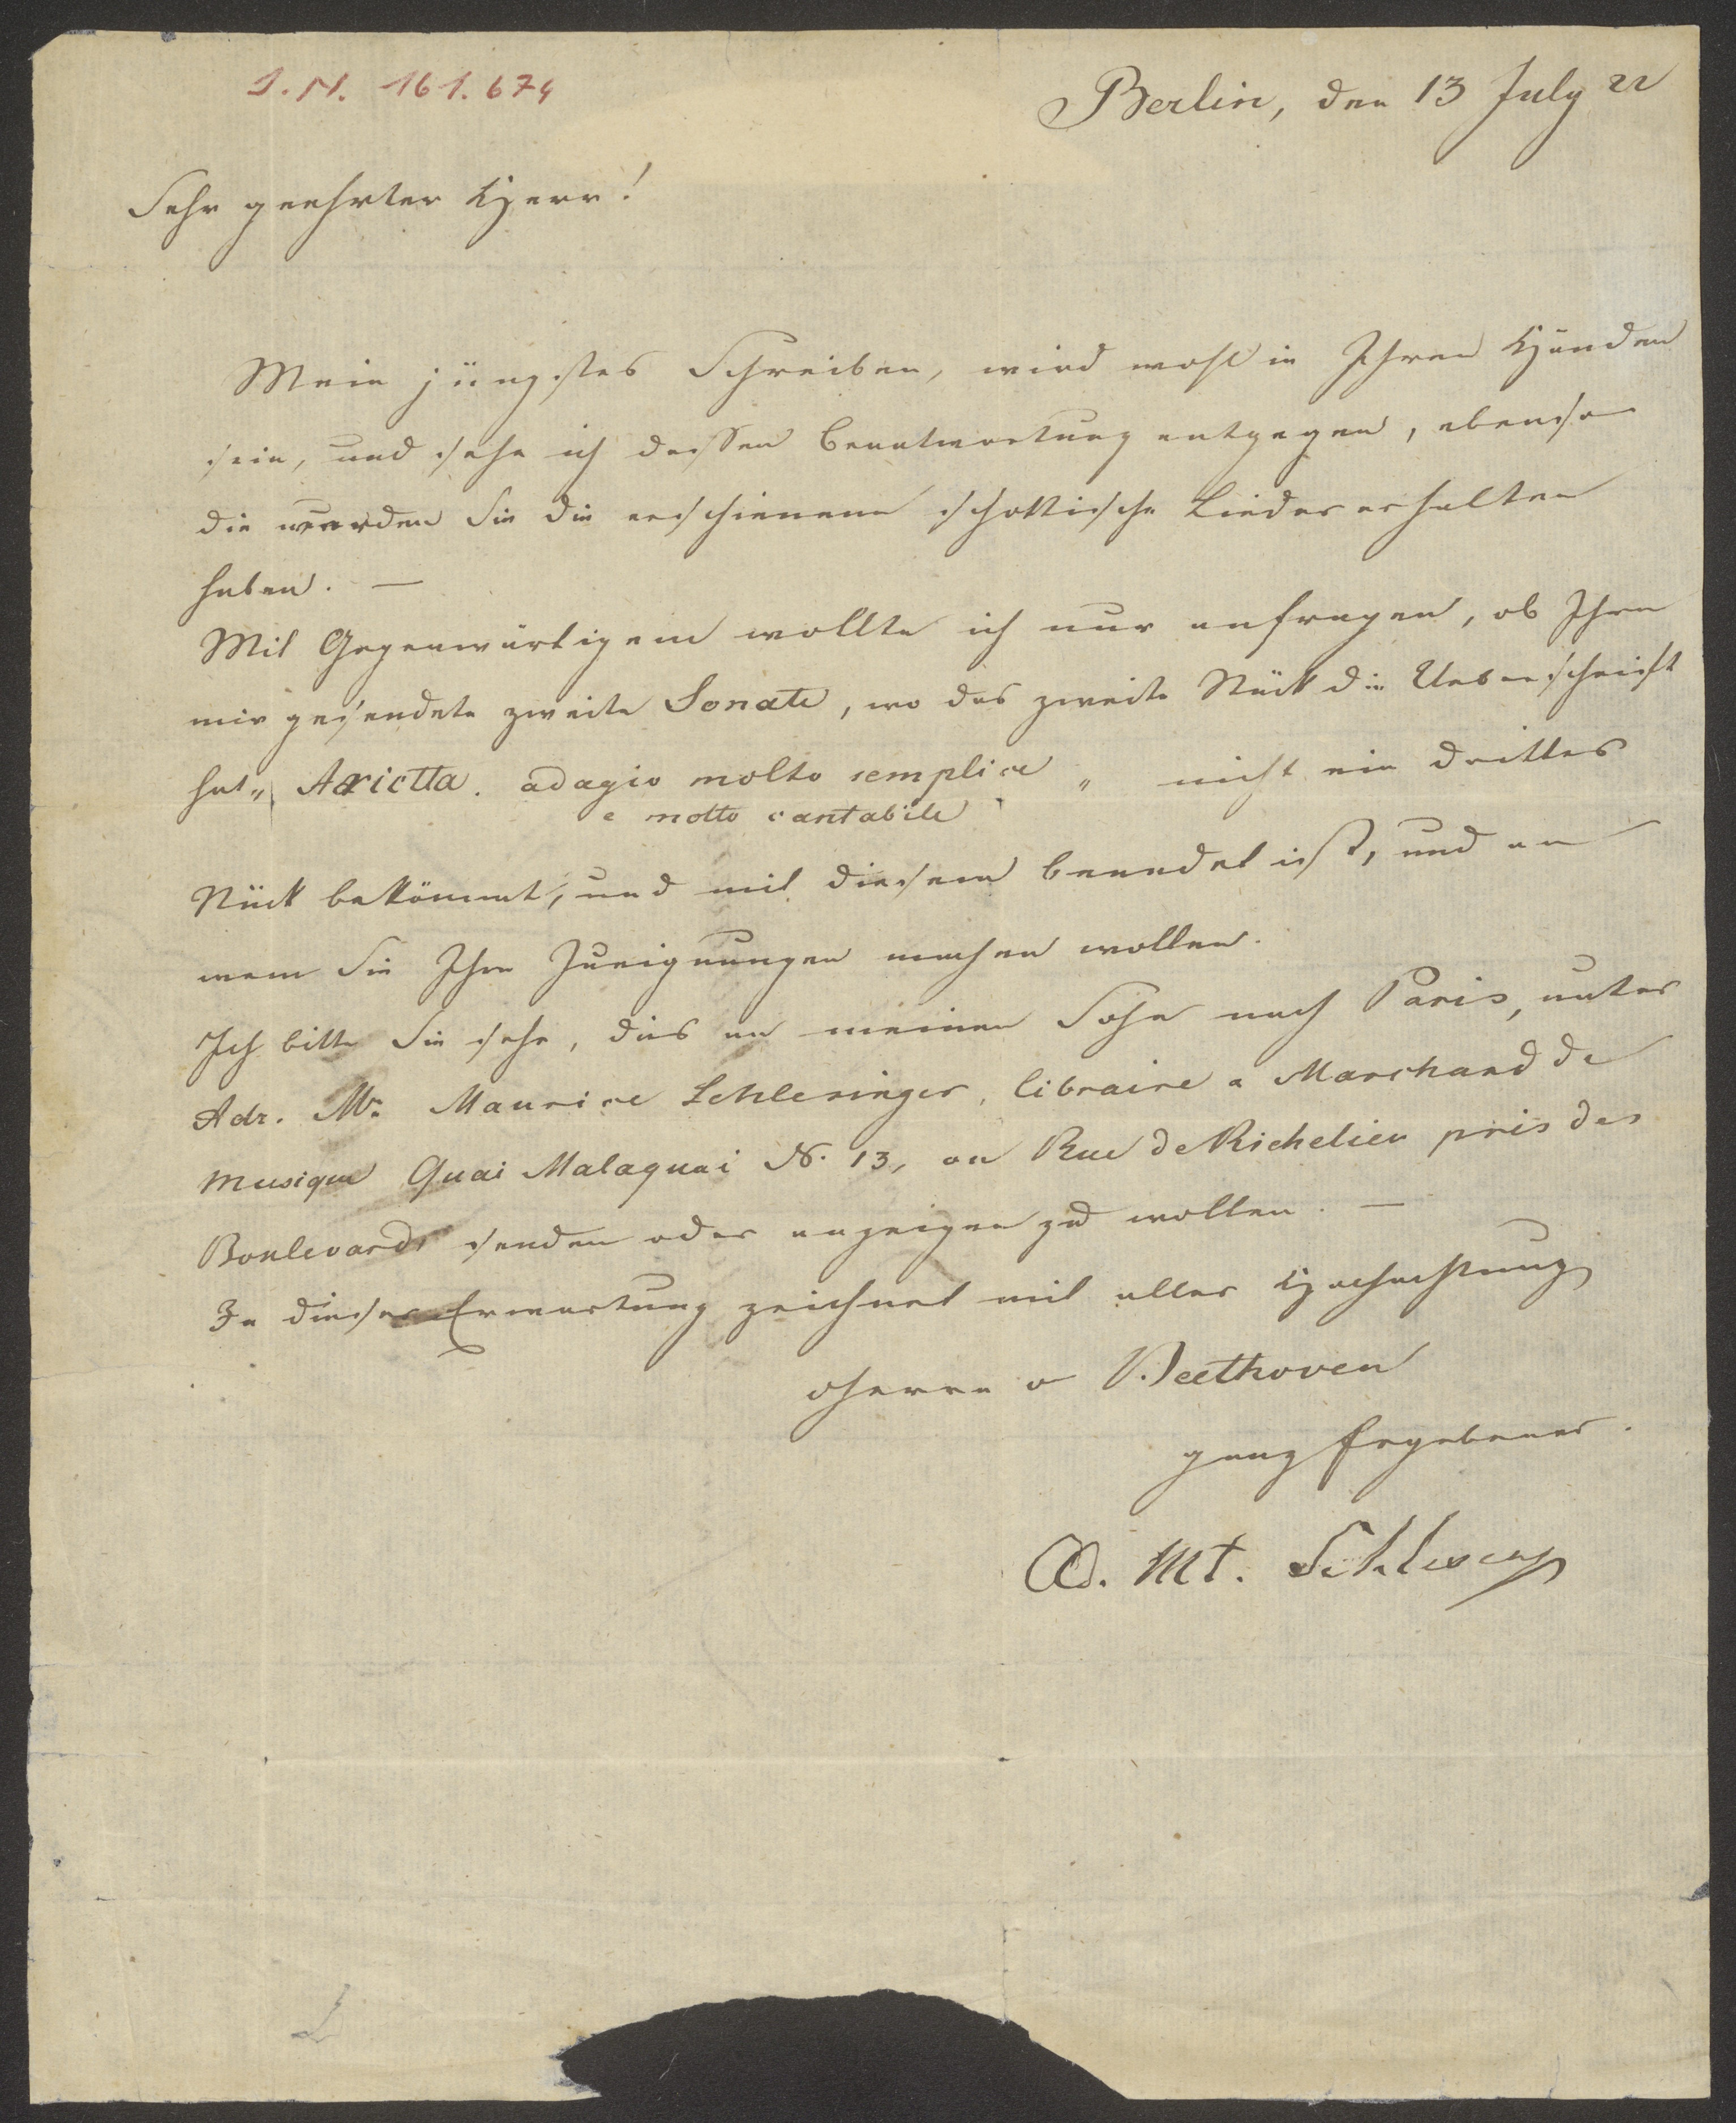 I. N. 161.674
Berlin, den 13 July 22
Sehr geehrter Herr!
Mein jüngstes Schreiben, wird wohl in Ihren Händen
sein, und sehe ich dessen Beantwortung entgegen, ebenso
die werden Sie die erschienene schottische Lieder erhalten
haben. —
Mit Gegenwärtigem wollte ich nur anfragen, ob Ihre
mir gesendete zweite Sonate, wo das zweite Stück die Ueberschrift
hat „ Arietta. adagio molto semplice „ nicht ein drittes
e molto cantabile
Stück bekömmt, und mit diesem beendet ist, und an
wem Sie Ihre Zueignungen machen wollen.
Ich bitte Sie sehr, dies an meinen Sohn nach Paris, unter
Adr. Mr. Maurice Schlesinger, libraire a Marchand de
musique Quai Malaquai N. 13, ou Rue de Richelieu pris des
Boulevards senden oder anzeigen zu wollen. —
In dieser Erwartung zeichnet mit aller Hochachtung
Herrn v Beethoven
ganz Ergebener.
Ad. Mt. Schlesing